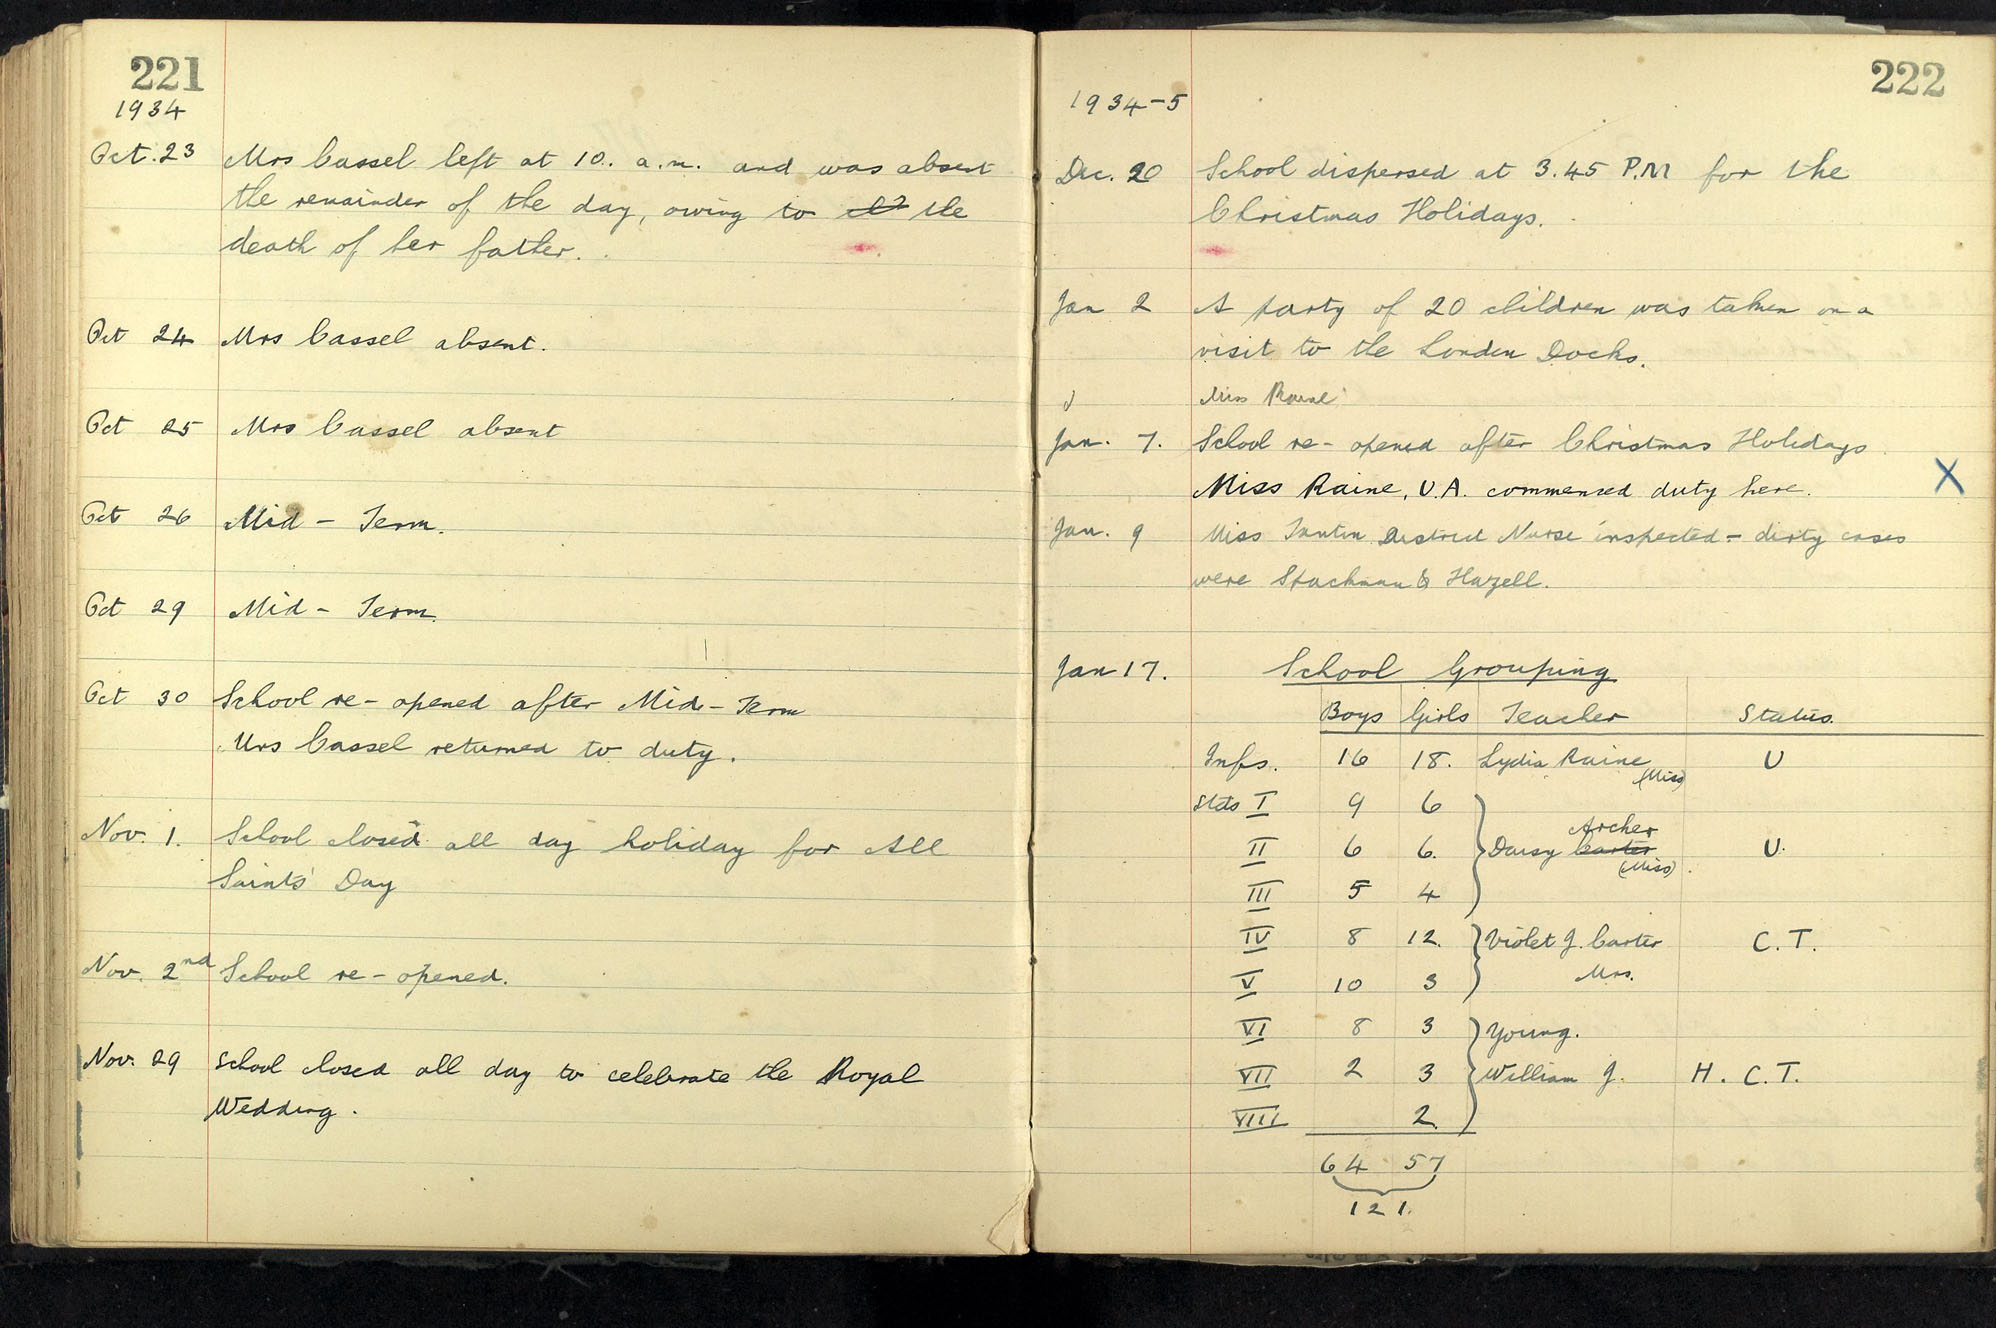 221
1934
Oct. 23 Mrs Cassel left at 10. a.m. and was absent
the remainder of the day, owing to the
death of her father.
Oct 24 Mrs Cassel absent.
Oct 25 Mrs Cassel absent
Oct 26 Mid - Term.
Oct 29 Mid - Term.
Oct 30 School re-opened after Mid-Term
Mrs Cassel returned to duty.
Nov. 1. School closed all day holiday for All
Saints' Day
Nov. 2nd School re-opened.
Nov. 29 School closed all day to celebrate the Royal
Wedding.
222
1934-5
Dec. 20 School dispersed at 3.45 P.M for the
Christmas Holidays.
Jan 2 A party of 20 children was taken on a
visit to the London Docks.
Miss Raine
Jan. 7. School re-opened after Christmas Holidays.
Miss Raine, U.A. commenced duty here. X
Jan. 9 Miss District Nurse inspected - dirty cases
were & Hazell.
Jan 17. School Grouping
Boys Girls Teacher Status.
Infs. 16 18. Lydia Raine U
(Miss)
Stds I 9 6
Archer
II 6 6. Daisy Carter U.
(Miss).
III 5 4
IV 8 12. Violet J. Carter C.T.
V 10 3 Mrs.
VI 8 3 Young.
VII 2 3 William J. H. C.T.
VIII 2.
64 57
121.